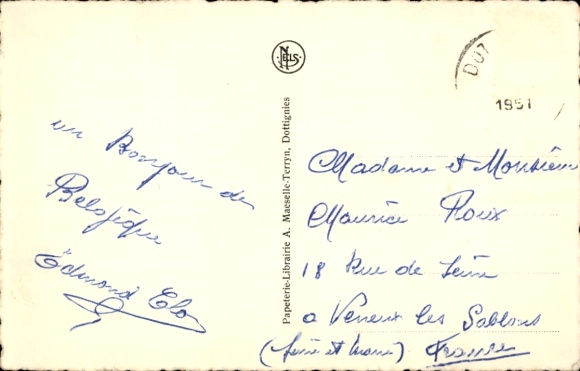 un Bonjour de
Belgique
Edmond Clo
NELS
Papeterie-Librairie A. Maeselle-Terryn, Dottignies
DOT
1951
Madame et Monsieur
Maurice Roux
18 Rue de Seine
a Veneux les Sablons
(Seine et Marne) France